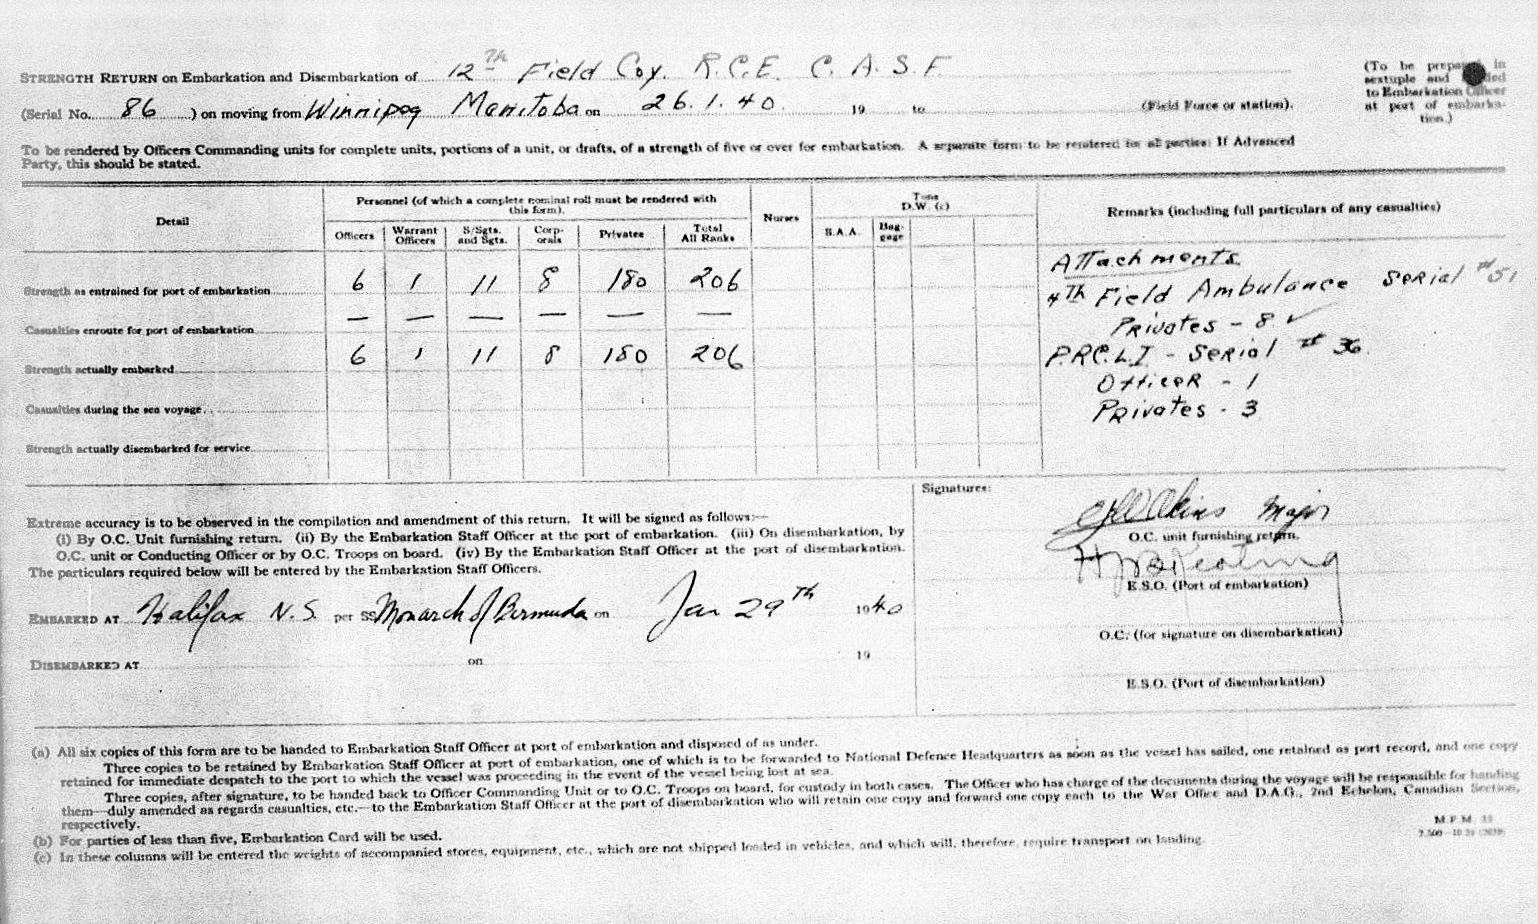 STRENGTH RETURN on Embarkation and Disembarkation of 12TH Field Coy. R.C.E. C.A.S.F.
(To be prepared in
sextuple and
to Embarkation Officer
at port of embarka-
tion.)
(Serial No. 86 ) on moving from Winnipeg Manitoba on 26.1.40. 19 to (Field Force or station).
To be rendered by Officers Commanding units for complete units, portions of a unit, or drafts, of a strength of five or over for embarkation. A separate form to be rendered for all parties: If Advanced
Party, this should be stated.
Detail
Personnel (of which a complete nominal roll must be rendered with
this form).
Nurses
Tons
D.W. (c)
Remarks (including full particulars of any casualties)
Officers Warrant Officers S/Sgts. and Sgts. Corp-orals Privates Total All Ranks S.A.A. Bag-gage
Strength as entrained for port of embarkation 6 1 11 8 180 206
Casualties enroute for port of embarkation — — — — — —
Strength actually embarked 6 1 11 8 180 206
Casualties during the sea voyage
Strength actually disembarked for service
Attachments
4TH Field Ambulance Serial #51
Privates - 8 ✓
P.P.C.L.I - Serial # 36
Officer - 1
Privates - 3
Extreme accuracy is to be observed in the compilation and amendment of this return. It will be signed as follows:—
(i) By O.C. Unit furnishing return. (ii) By the Embarkation Staff Officer at the port of embarkation. (iii) On disembarkation, by
O.C. unit or Conducting Officer or by O.C. Troops on board. (iv) By the Embarkation Staff Officer at the port of disembarkation.
The particulars required below will be entered by the Embarkation Staff Officers.
EMBARKED AT Halifax N.S. per SS Monarch of Bermuda on Jan 29TH 1940
DISEMBARKED AT on 19
Signatures:
Akins Major
O.C. unit furnishing return.
Keating
E.S.O. (Port of embarkation)
O.C. (for signature on disembarkation)
E.S.O. (Port of disembarkation)
(a) All six copies of this form are to be handed to Embarkation Staff Officer at port of embarkation and disposed of as under.
Three copies to be retained by Embarkation Staff Officer at port of embarkation, one of which is to be forwarded to National Defence Headquarters as soon as the vessel has sailed, one retained as port record, and one copy
retained for immediate despatch to the port to which the vessel was proceeding in the event of the vessel being lost at sea.
Three copies, after signature, to be handed back to Officer Commanding Unit or to O.C. Troops on board, for custody in both cases. The Officer who has charge of the documents during the voyage will be responsible for handing
them—duly amended as regards casualties, etc.—to the Embarkation Staff Officer at the port of disembarkation who will retain one copy and forward one copy each to the War Office and D.A.G., 2nd Echelon, Canadian Section,
respectively.
(b) For parties of less than five, Embarkation Card will be used.
(c) In these columns will be entered the weights of accompanied stores, equipment, etc., which are not shipped loaded in vehicles, and which will, therefore, require transport on landing.
M.F.M.